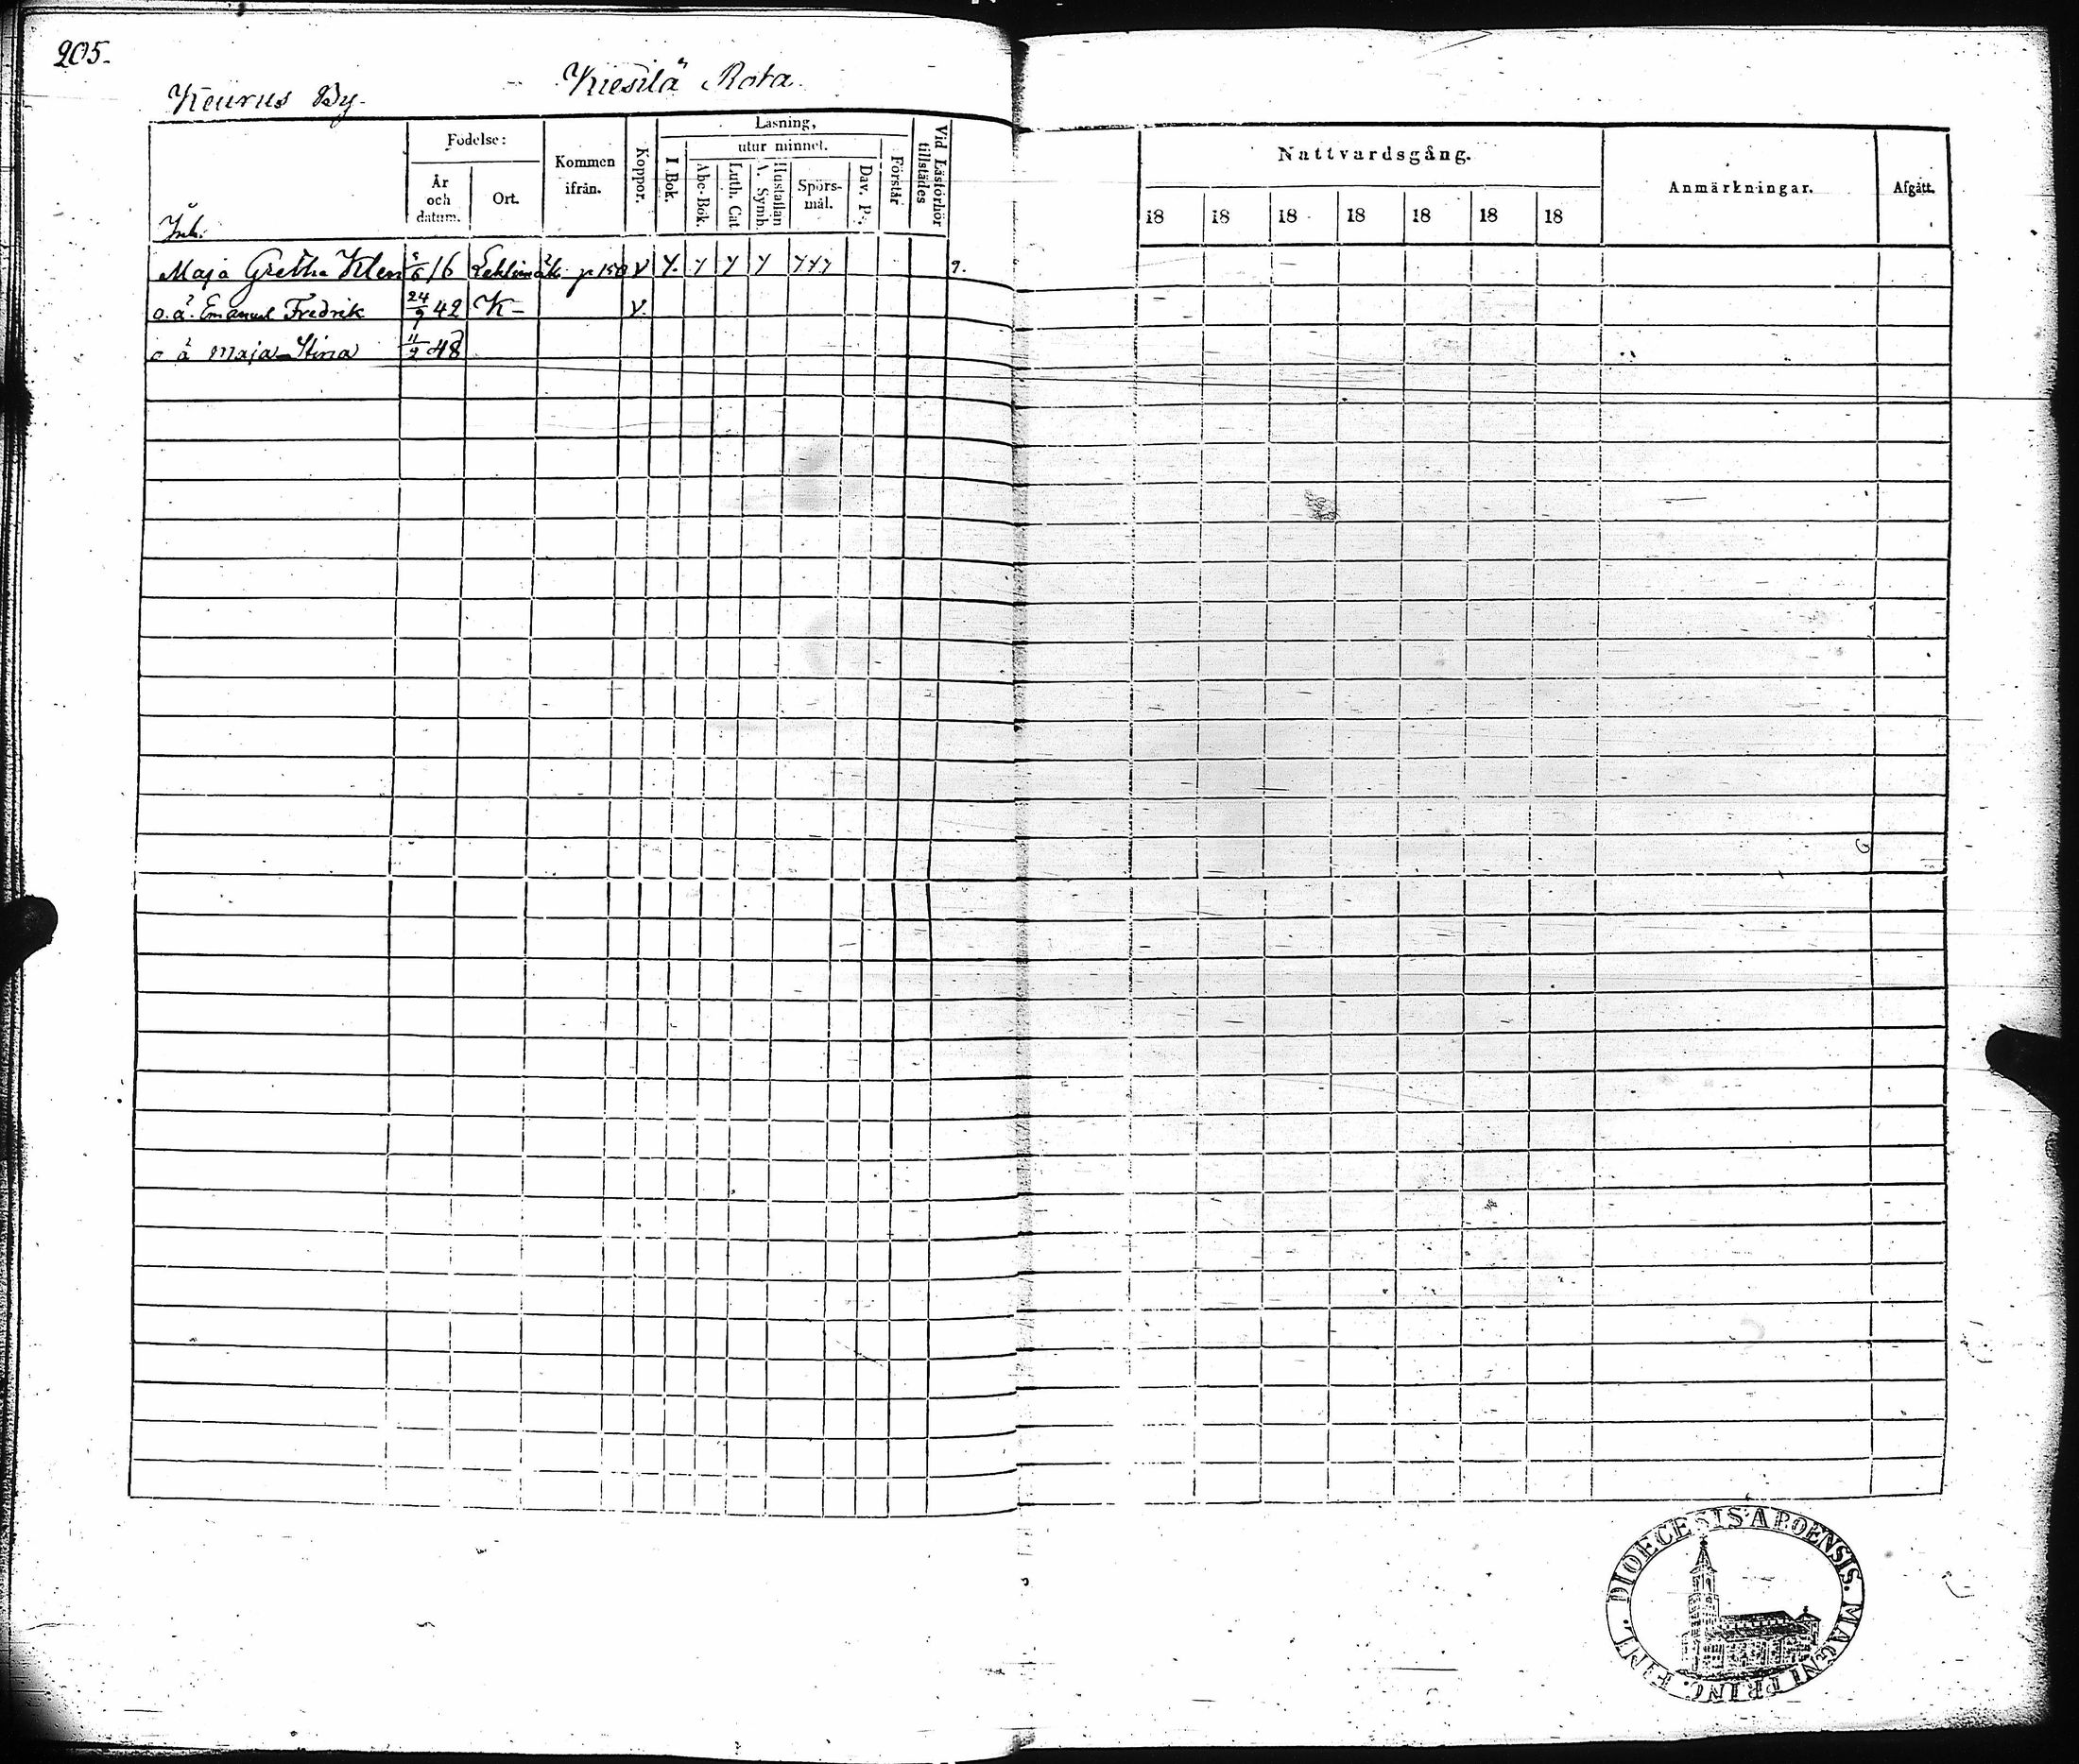 205.
Keurus By.
Kiesilä Rota.
Födelse:
År och datum.
Ort.
Kommen ifrån.
Koppor.
Läsning,
I Bok.
utur minnet.
Abc-Bok.
Luth. Cat
Hustaflan A. Symb.
Spörsmål.
Dav. Ps.
Förstår
Vid Läsförhör tillstädes
Nattvardsgång.
18 18 18 18 18 18 18
Anmärkningar.
Afgått.
Inh:
Maja Gretha Klen 5/6 16 p 150 v
o.ä. Emanuel Fredrik 24/9 42 K- v.
o ä Maja Stina 11/2 48
DIOECESIS ABOENSIS. MAGNI PRINC. FINL.